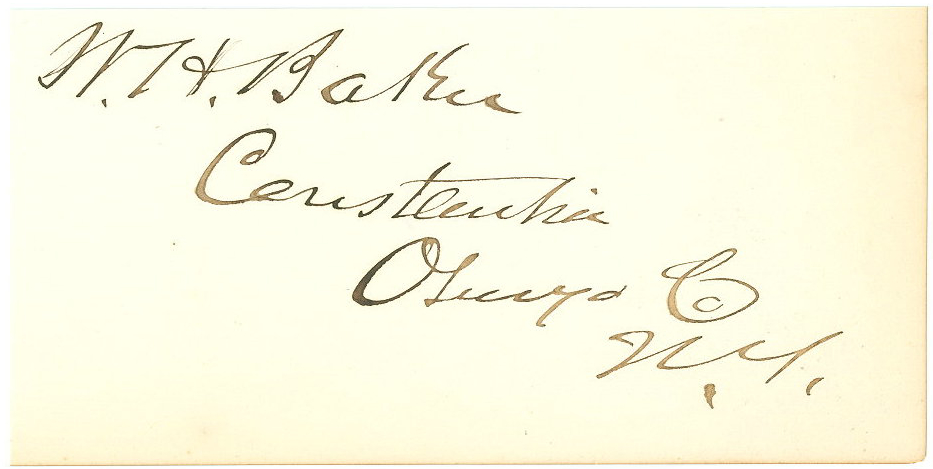 W. H. Baker
Constantia
Oswego Co
N.Y.